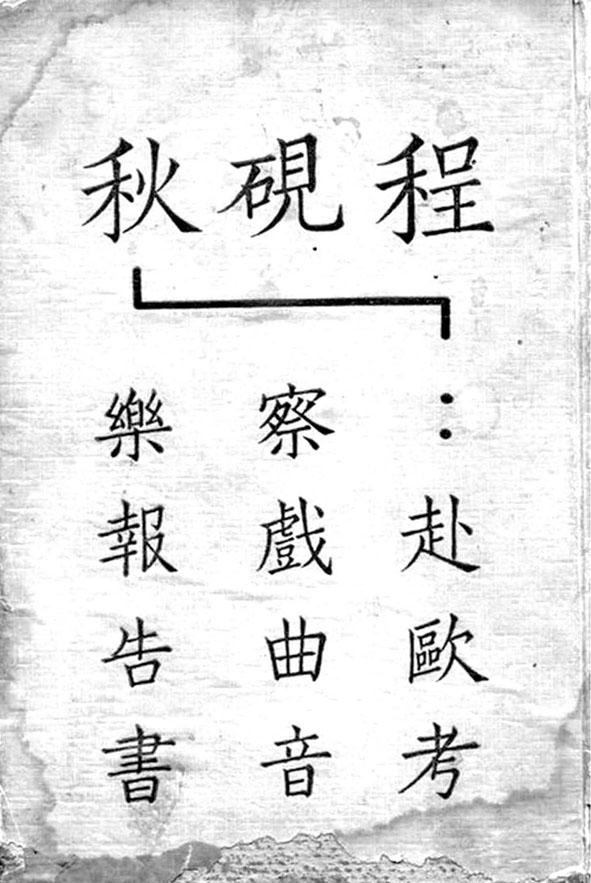 程硯秋
:赴歐考
察戲曲音
樂報告書